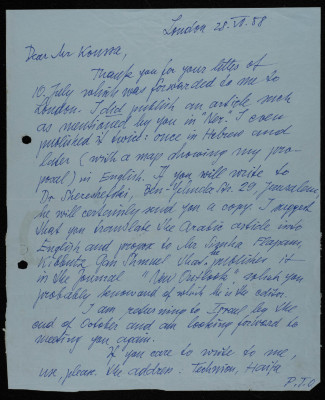 London 28.VII.58
Dear Mr Koussa,
Thank you for your letter of
10. July which was forwarded to me to
London. I did publish an article such
as mentioned by you in "Ner". I even
published it twice: once in Hebrew and
later (with a map showing my pro-
posal) in English. If you will write to
Dr Shereshefski, Ben-Yehuda Str. 29, Jerusalem,
he will certainly send you a copy. I suggest
that you translate the Arabic article into
English and propose to Mr Simha Flapan,
Kibbutz Gan Shmuel that publishes it
in the journal "New Outlook", which you
probably know and of which he is the editor.
I am returning to Israel by the
end of October and am looking forward to
meeting you again.
If you care to write to me,
use, please the address: Technion, Haifa
P.T.O